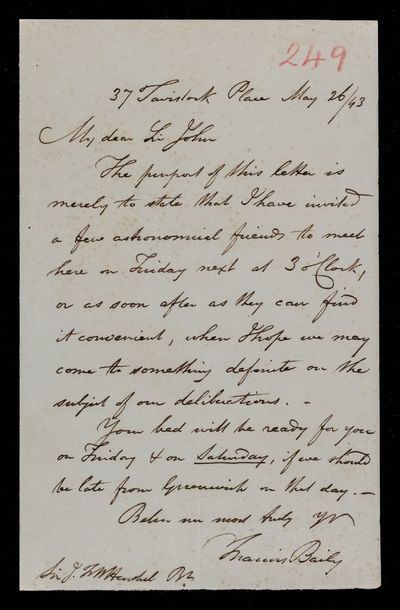 249
37 Tavistock Place May 26/43
My dear Sir John
The purport of this letter is
merely to state that I have invited
a few astronomical friends to meet
here on Friday next at 3 o'Clock,
or as soon after as they can find
it convenient, when I hope we may
come to something definite on the
subject of our deliberations. -
Your bed will be ready for you
on Friday & on Saturday, if we should
be late from Greenwich on that day. -
Believe me most truly Yrs
Francis Baily
Sir J. F. W. Herschel Bt